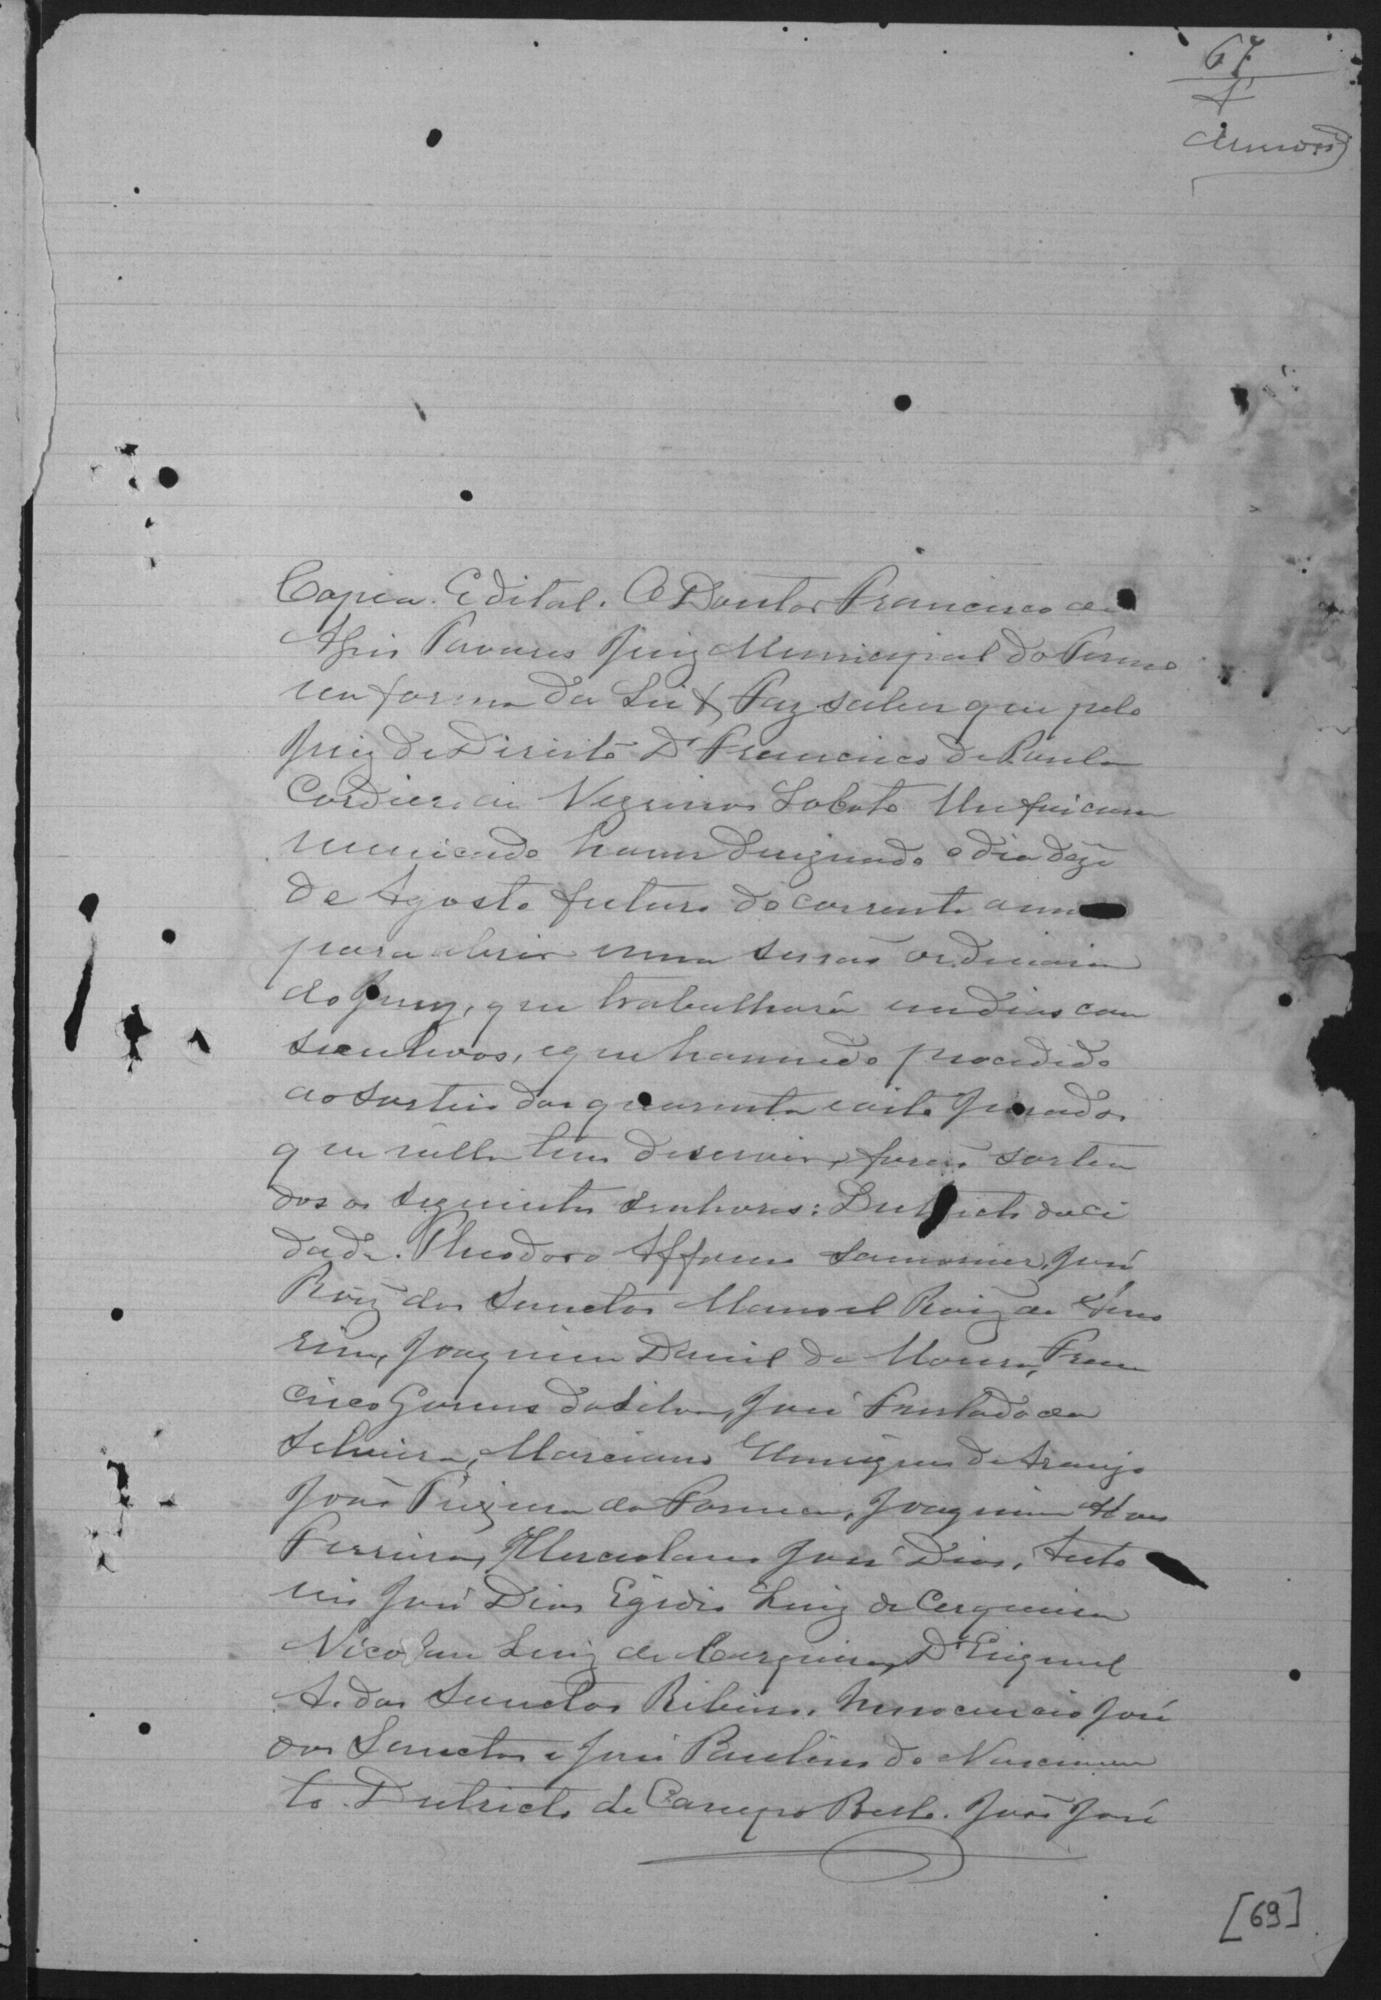 67
Copia. Edital. O Doutor Francisco de
Assis Tavares Juiz Municipal do Termo
na forma da Lei & Faz saber que pelo
Juiz de Direito Dr Francisco de Paula
Cordeiro de Negreiros Lobato me foi com
municado haver designado o dia deze
de Agosto futuro do corrente anno
para abrir uma sessão ordinaria
do Jury, que trabalhará em dias con
secutivos, e que havendo procedido
ao sorteio dos quarenta e oito Jurados
que nella tem de servir, forão sortea
dos os seguintes senhores: Districto da ci
dade. Theodoro Affonso José
Roiz dos Sanctos Manoel Roiz de
Joaquim Daniel de Moura, Fran
cisco Gomes da Silva, José Furtado da
Silveira, Marciano Henriques de Araujo
João da Fonseca, Joaquim
Ferreira, Herculano José Dias, Anto
nio José Dias Egidio Luiz de Cerqueira
Nicolau Luiz de Cerqueira, Dr
A. dos Sanctos Ribeiro, Innocencio José
dos Sanctos e José Paulino do Nascimen
to. Districto de Campo Bello. João José
[69]